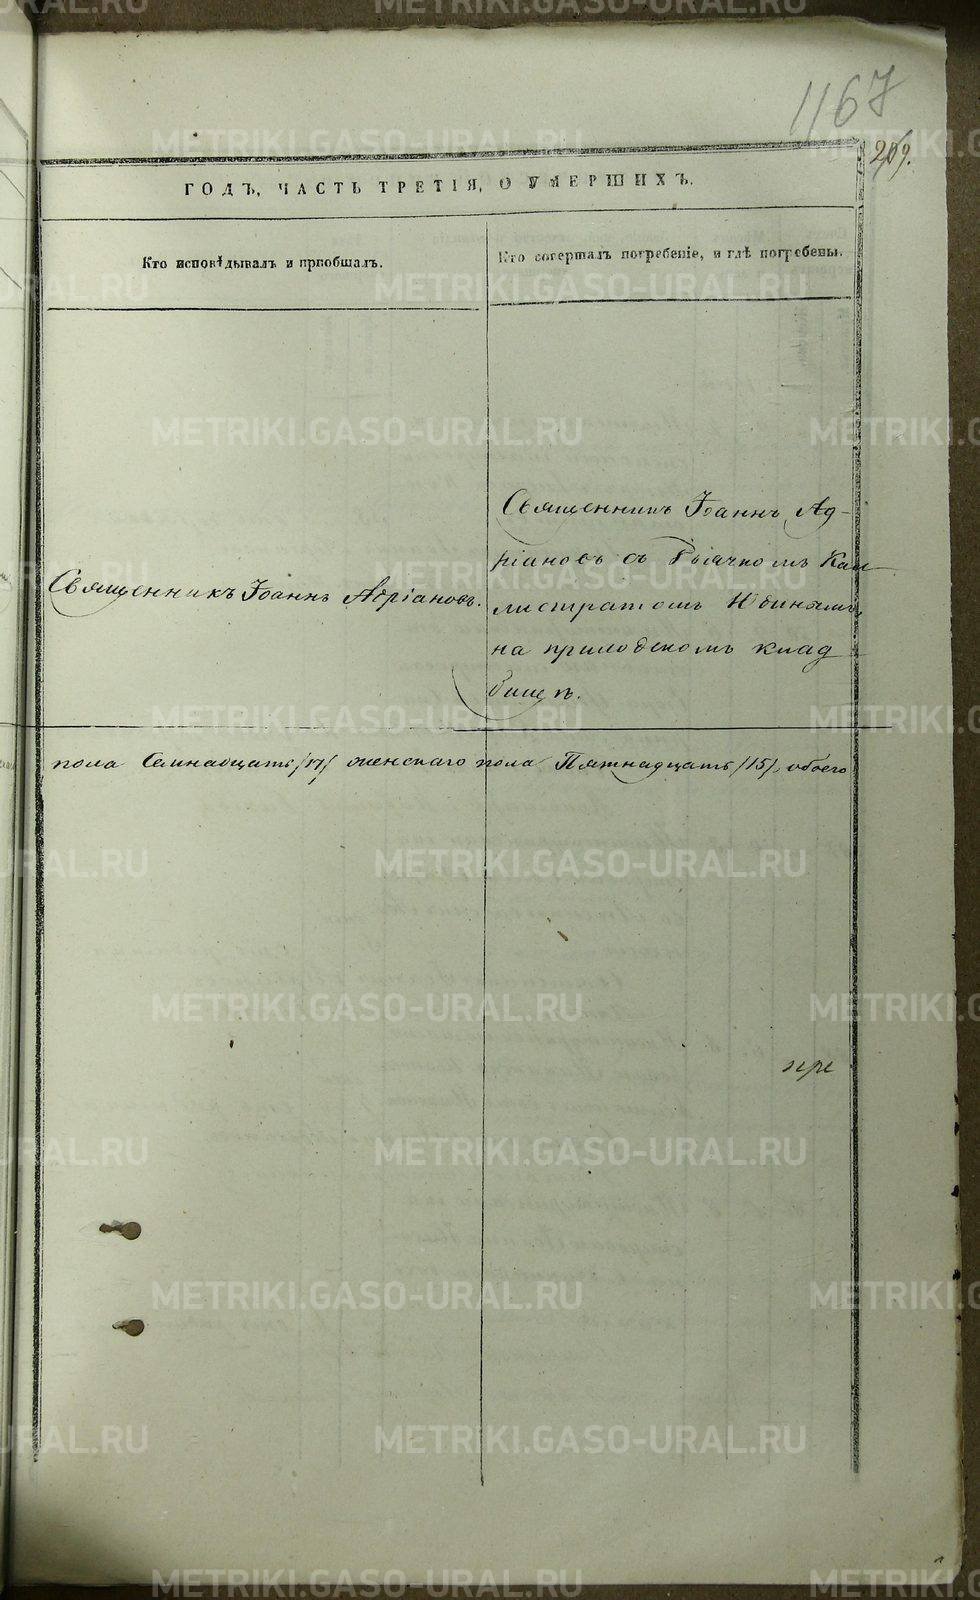 1167
209.
ГОДЪ, ЧАСТЬ ТРЕТІЯ, О УМЕРШИХЪ.
Кто исповѣдывалъ и пріобщалъ.
Кто совершалъ погребеніе, и гдѣ погребены.
Священникъ Іоаннъ Адріановъ.
Священникъ Іоаннъ Ад-
ріановъ съ Дьячкомъ Кал-
листратомъ
на приходскомъ клад
бищѣ.
пола Семнадцать /17/ женскаго пола Пятнадцать /15/, обоего
METRIKI.GASO-URAL.RU